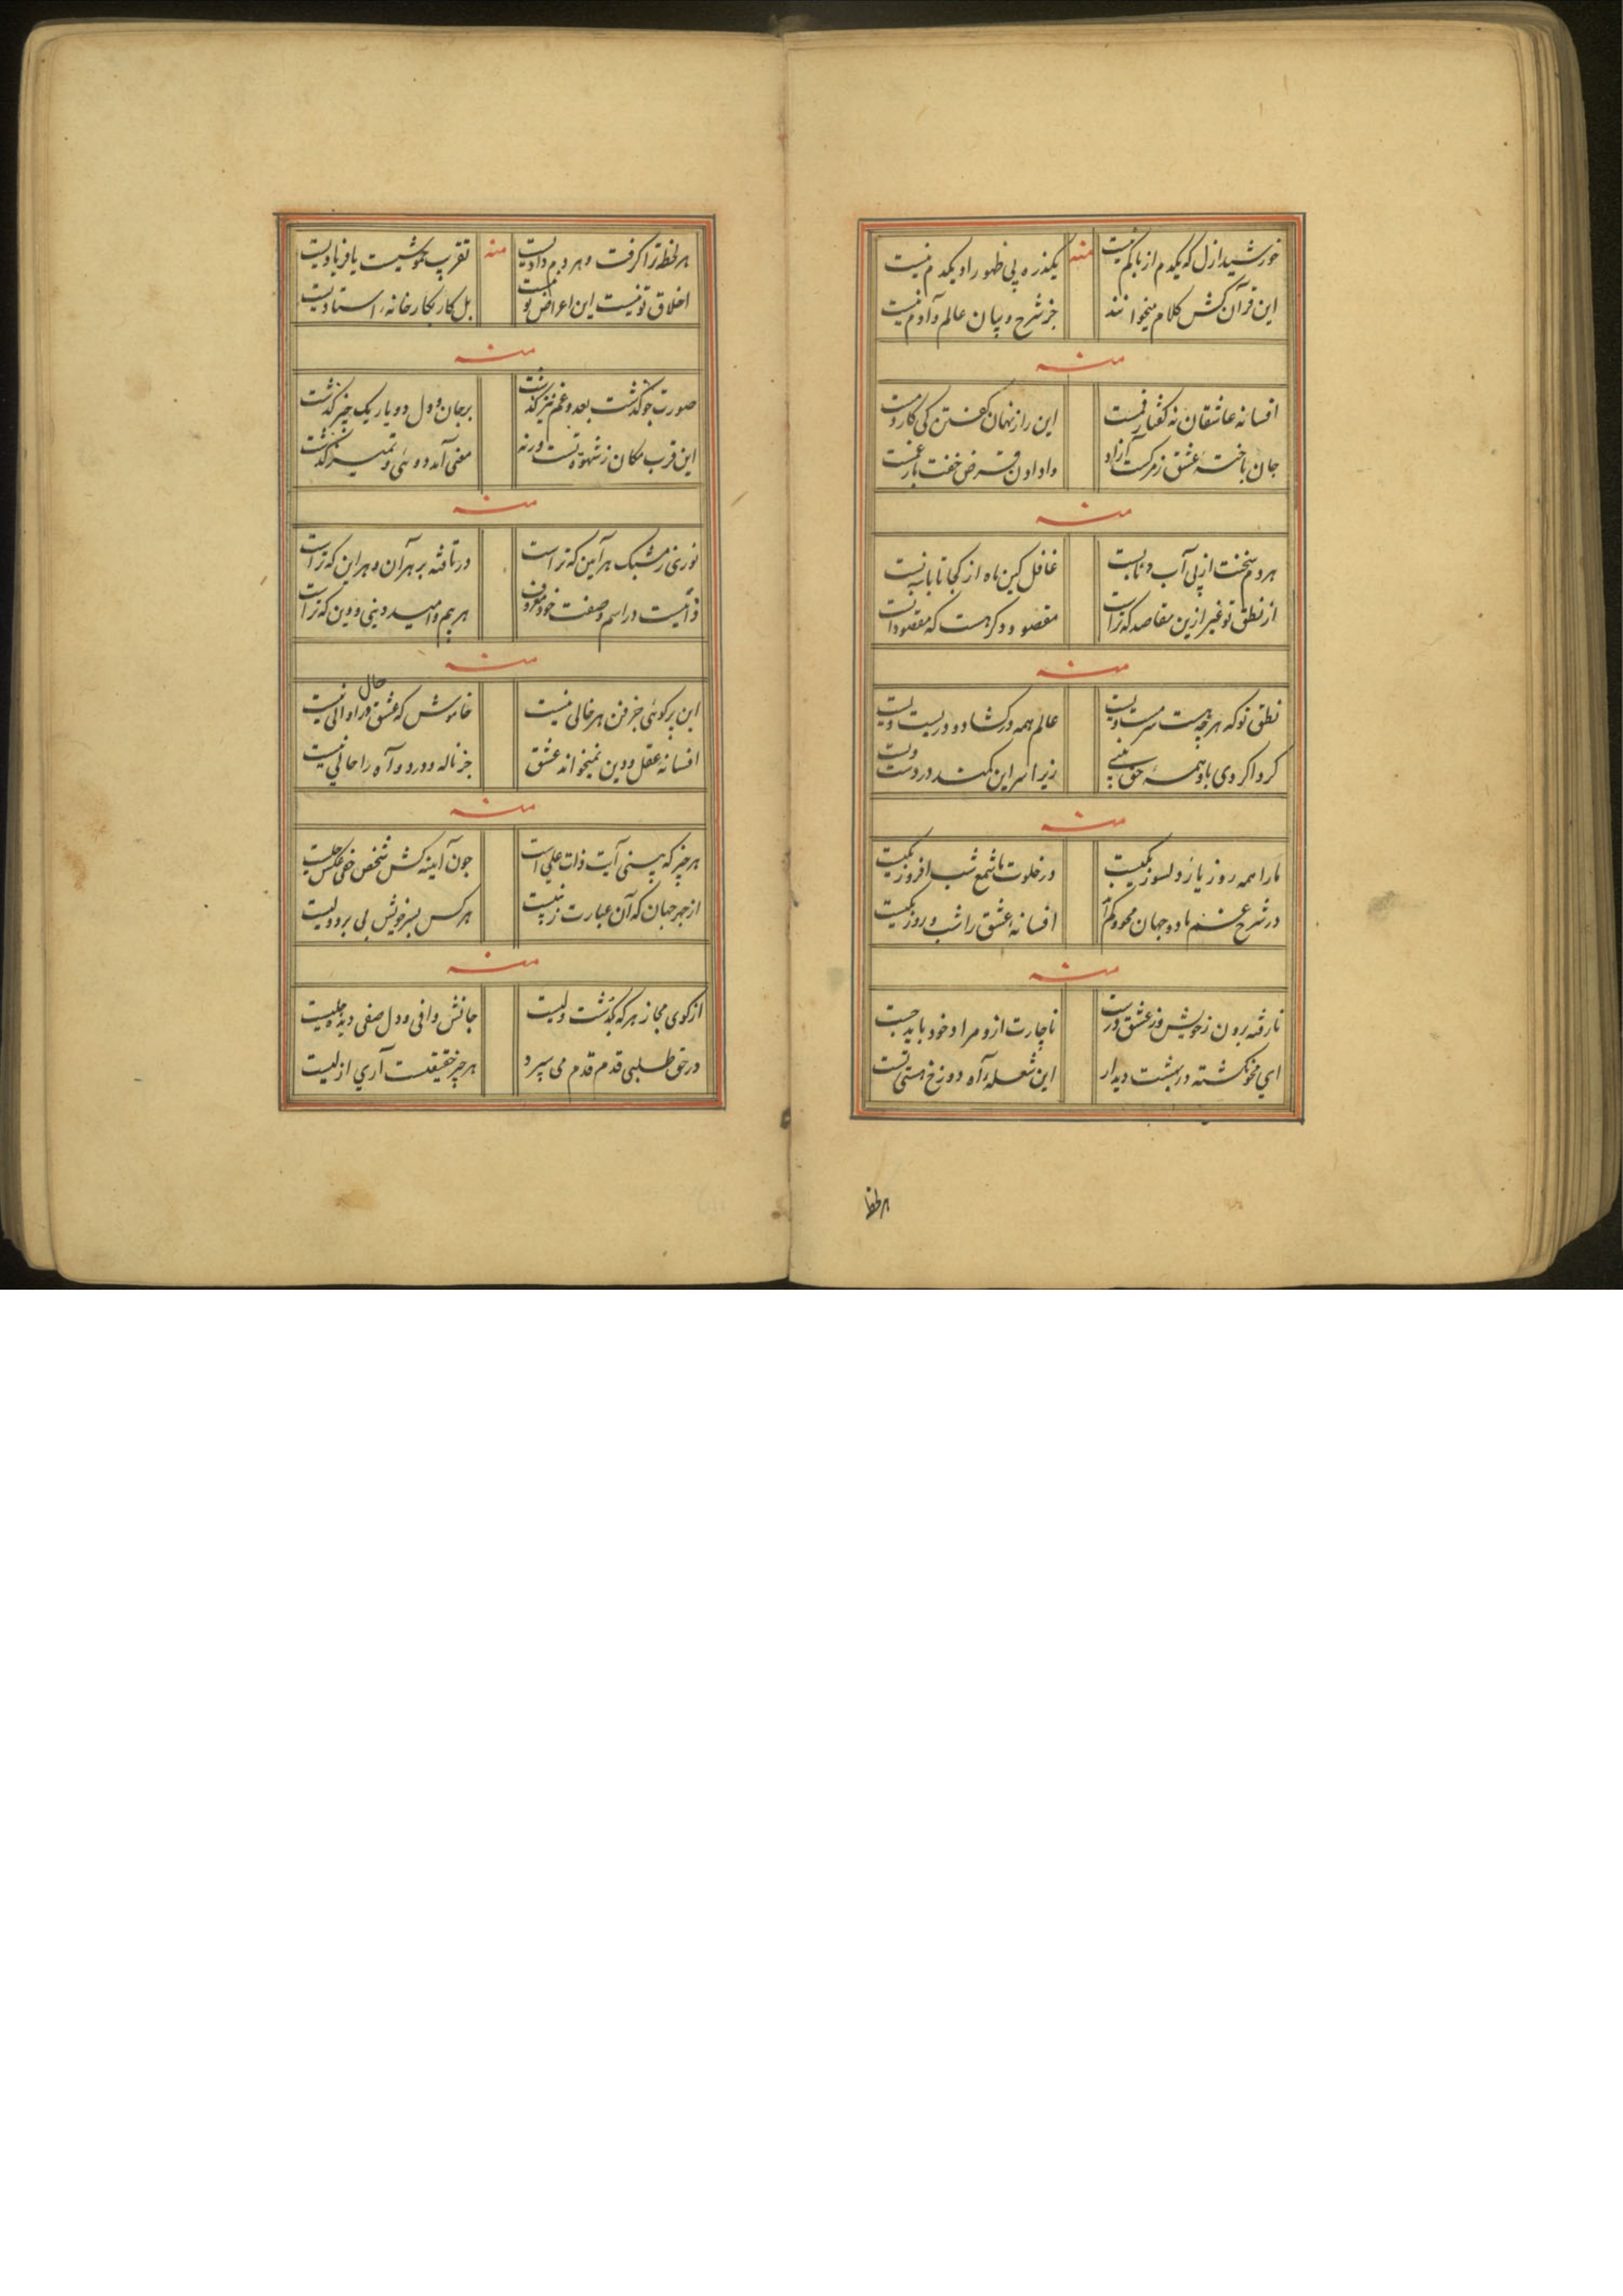 خورشید ازل که یکدم از ما کم نیست منه یکذره پی ظهور او یکدم نیست
این قرآن کش کلام میخوانند جز شرح و بیان عالم و آدم نیست
منه
افسانه عاشقان نه گفتار فمست این راز نهان کفتن کی کار دمست
جان باخته عشق ز مرکست آزاد وا دادن قرض خفت بار غمست
منه
هر دم سخنت از پی آب و نانست غافل کین ماه از کجا تابانست
از نطق تو غیر ازین مقاصد که تراست مقصود دکر هست که مقصود آنست
منه
نطق تو که هر چه هست سرمست ویست عالم همه در کشاد و در بست ویست
کرد ار کردی باد همه حق بینی زیرا سر این کمند در دست ویست
منه
ما را همه روز یار دلسوز یکیست در خلوت ما شمع شب افروز یکیست
در شرح غم ما دو جهان محو و کم افسانه عشق را شب و روز یکیست
منه
نارفته برون ز خویش وز عشق درست ناچارت ازو مراد خود باید جست
ای محو نکشته در بهشت دیدار این شعله آه دوزخ هستی تست
هر لحظه
هر لحظه ترا کرفت و هر دم دادیست منه تقریب خموشیست یا فریادیست
اخلاق تو نیست این اعراض تو نیست بل کار نکارخانه استادیست
منه
صورت چو کذشت بعد و غم نیز کذشت بر جان و دل دو یار یک چیز کذشت
این قرب مکان ز شهوة تست ورنه معنی آمد دوئی و تمییز کذشت
منه
نوری ز مشبک هر آیین که تراست در تافته بر هر آن و هر این که تراست
ذاتیست در اسم و صفت خود معروف هر بیم و امید دینی و دین که تراست
منه
این پرکوئی جز فن هر خالی نیست خاموش که عشق در او حال الی نیست
افسانه عقل و دین نمیخواند عشق جز ناله و درد و آه را حالی نیست
منه
هر چیز که بینی آیت ذات علی است چون آینه کش شخص خفی عکس جلیست
از جهر جهان که آن عبارت ز نبیست هر کس بسر خویش پی برد ولیست
منه
از کوی مجاز هر که بکذشت ولیست جانش وافی و دل صفی دیده جلیست
در حق طلبی قدم قدم می سپرد هر چیز حقیقتست آری ازلیست